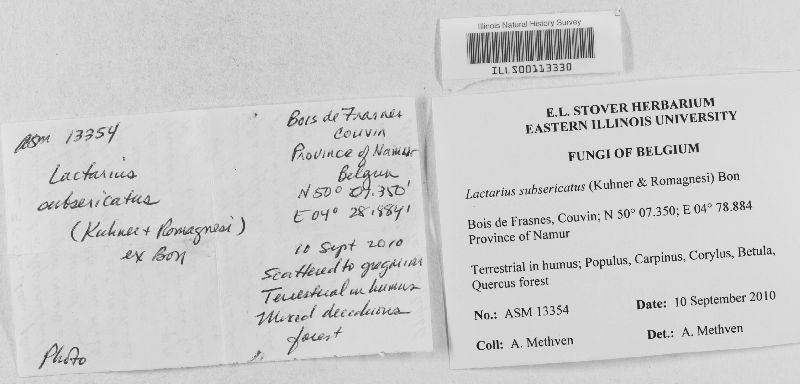 Illinois Natural History Survey
ILLS00113330
ASM 13354
Lactarius
subsericatus
(Kuhner & Romagnesi)
ex Bon
Photo
Bois de Frasnes
Couvin
Province of Namur
Belgium
N 50° 07.350'
E 04° 28.884'
10 Sept 2010
Scattered to gregarious
Terrestrial in humus
Mixed deciduous
forest
E.L. STOVER HERBARIUM
EASTERN ILLINOIS UNIVERSITY
FUNGI OF BELGIUM
Lactarius subsericatus (Kuhner & Romagnesi) Bon
Bois de Frasnes, Couvin; N 50° 07.350; E 04° 78.884
Province of Namur
Terrestrial in humus; Populus, Carpinus, Corylus, Betula,
Quercus forest
No.: ASM 13354 Date: 10 September 2010
Coll: A. Methven Det.: A. Methven